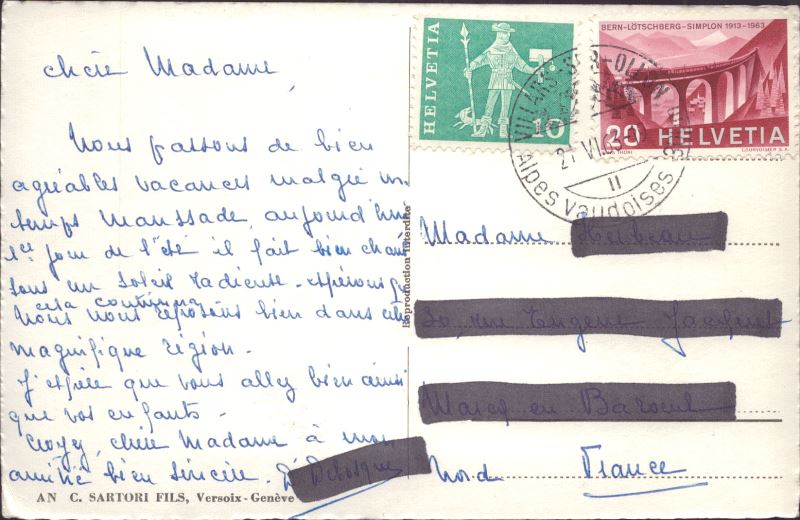 chère Madame,
Nous passons de bien
agréables vacances malgré un
temps maussade, aujourd'hui
1er jour de l'été il fait bien chaud
sous un soleil radieux - espérons que
cela continuera
Nous nous reposons bien dans cette
magnifique région -
J'espère que vous allez bien ainsi
que vos enfants -
Croyez, chère Madame à mon
amitié bien sincère.
AN C. SARTORI FILS, Versoix-Genève
Reproduction interdite
HELVETIA
10
BERN-LÖTSCHBERG-SIMPLON 1913-1963
20 HELVETIA
COURVOISIER S.A.
VILLARS-SUR-OLLON
21 VI 63
11
Alpes vaudoises
Madame
Nord France